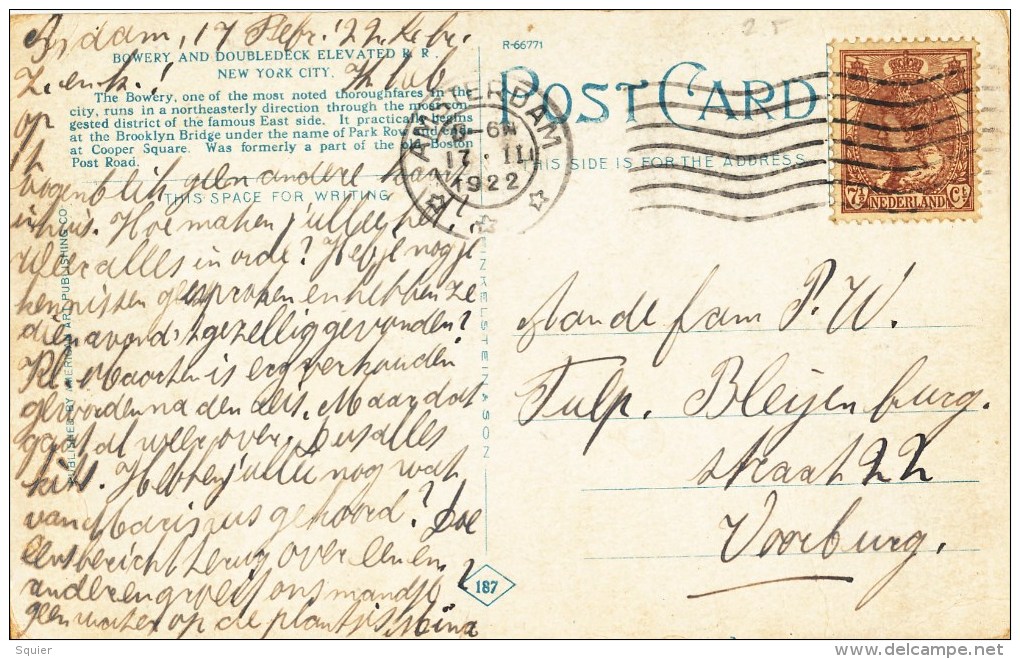 A'dam, 17 Febr. '22.
BOWERY AND DOUBLEDECK ELEVATED R. R.
NEW YORK CITY.
The Bowery, one of the most noted thoroughfares in the
city, runs in a northeasterly direction through the most con-
gested district of the famous East side. It practically begins
at the Brooklyn Bridge under the name of Park Row and ends
at Cooper Square. Was formerly a part of the old Boston
Post Road.
THIS SPACE FOR WRITING
Ik heb
op
't
oogenblik geen andere kaart
in huis. Hoe maken jullie het,
weer alles in orde? Heb je nog je
kennissen gesproken en hebben ze
dien avond 't gezellig gevonden?
Kl. Maarten is erg verkouden
geworden na den reis. Maar dat
gaat al weer over. Dus alles
kits. Hebben jullie nog wat
van Marispus gehoord? Doe
eens bericht terug over een en
ander en groet ons mandje
geen water op de plantjes Mina
PUBLISHED BY AMERICAN ART PUBLISHING CO
FINKELSTEIN & SON
187
R-66771
POST CARD
THIS SIDE IS FOR THE ADDRESS
AMSTERDAM
17 . II
1922
7½ NEDERLAND Ct
Aan de fam P. W.
Tulp. Bleijenburg.
straat 22
Voorburg.
Squier
delcampe.net